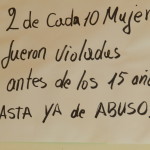 2 de Cada 10 Mujer
fueron Violadas
antes de los 15 año
ASTA YA de ABUSO